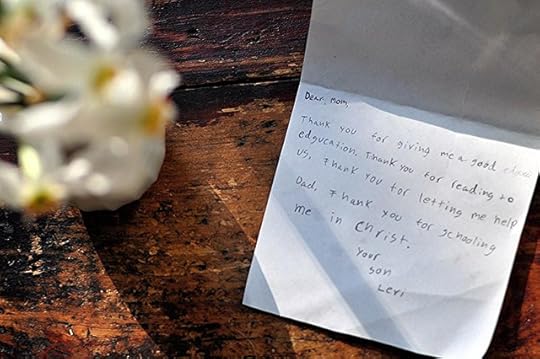 Dear, Mom,
Thank you for giving me a good
edgucation, Thank you for reading to
us, Thank you for letting me help
Dad, Thank you for schooling
me in Christ.
Your
son
Levi